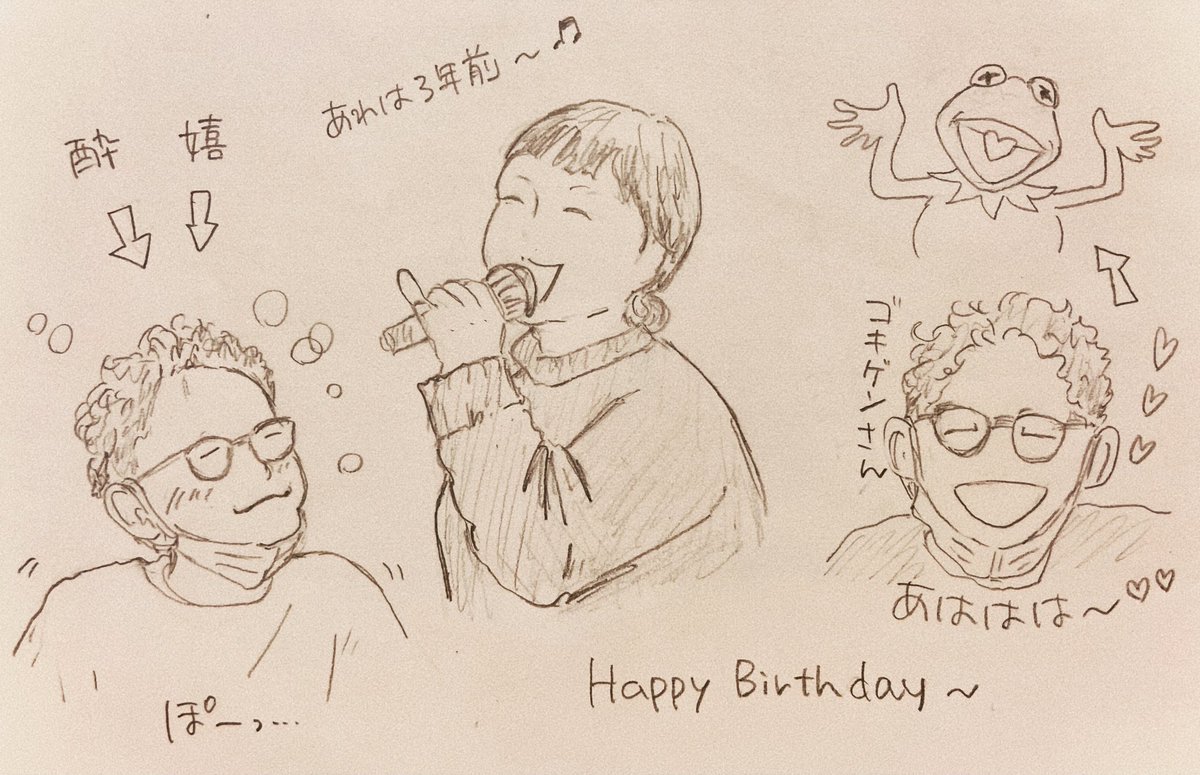 あれは3年前～♫
酔
嬉
ゴキゲンさん
あははは～♡♡
ぽーっ…
Happy Birthday～